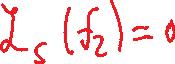 ℒₛ(f₂)=0